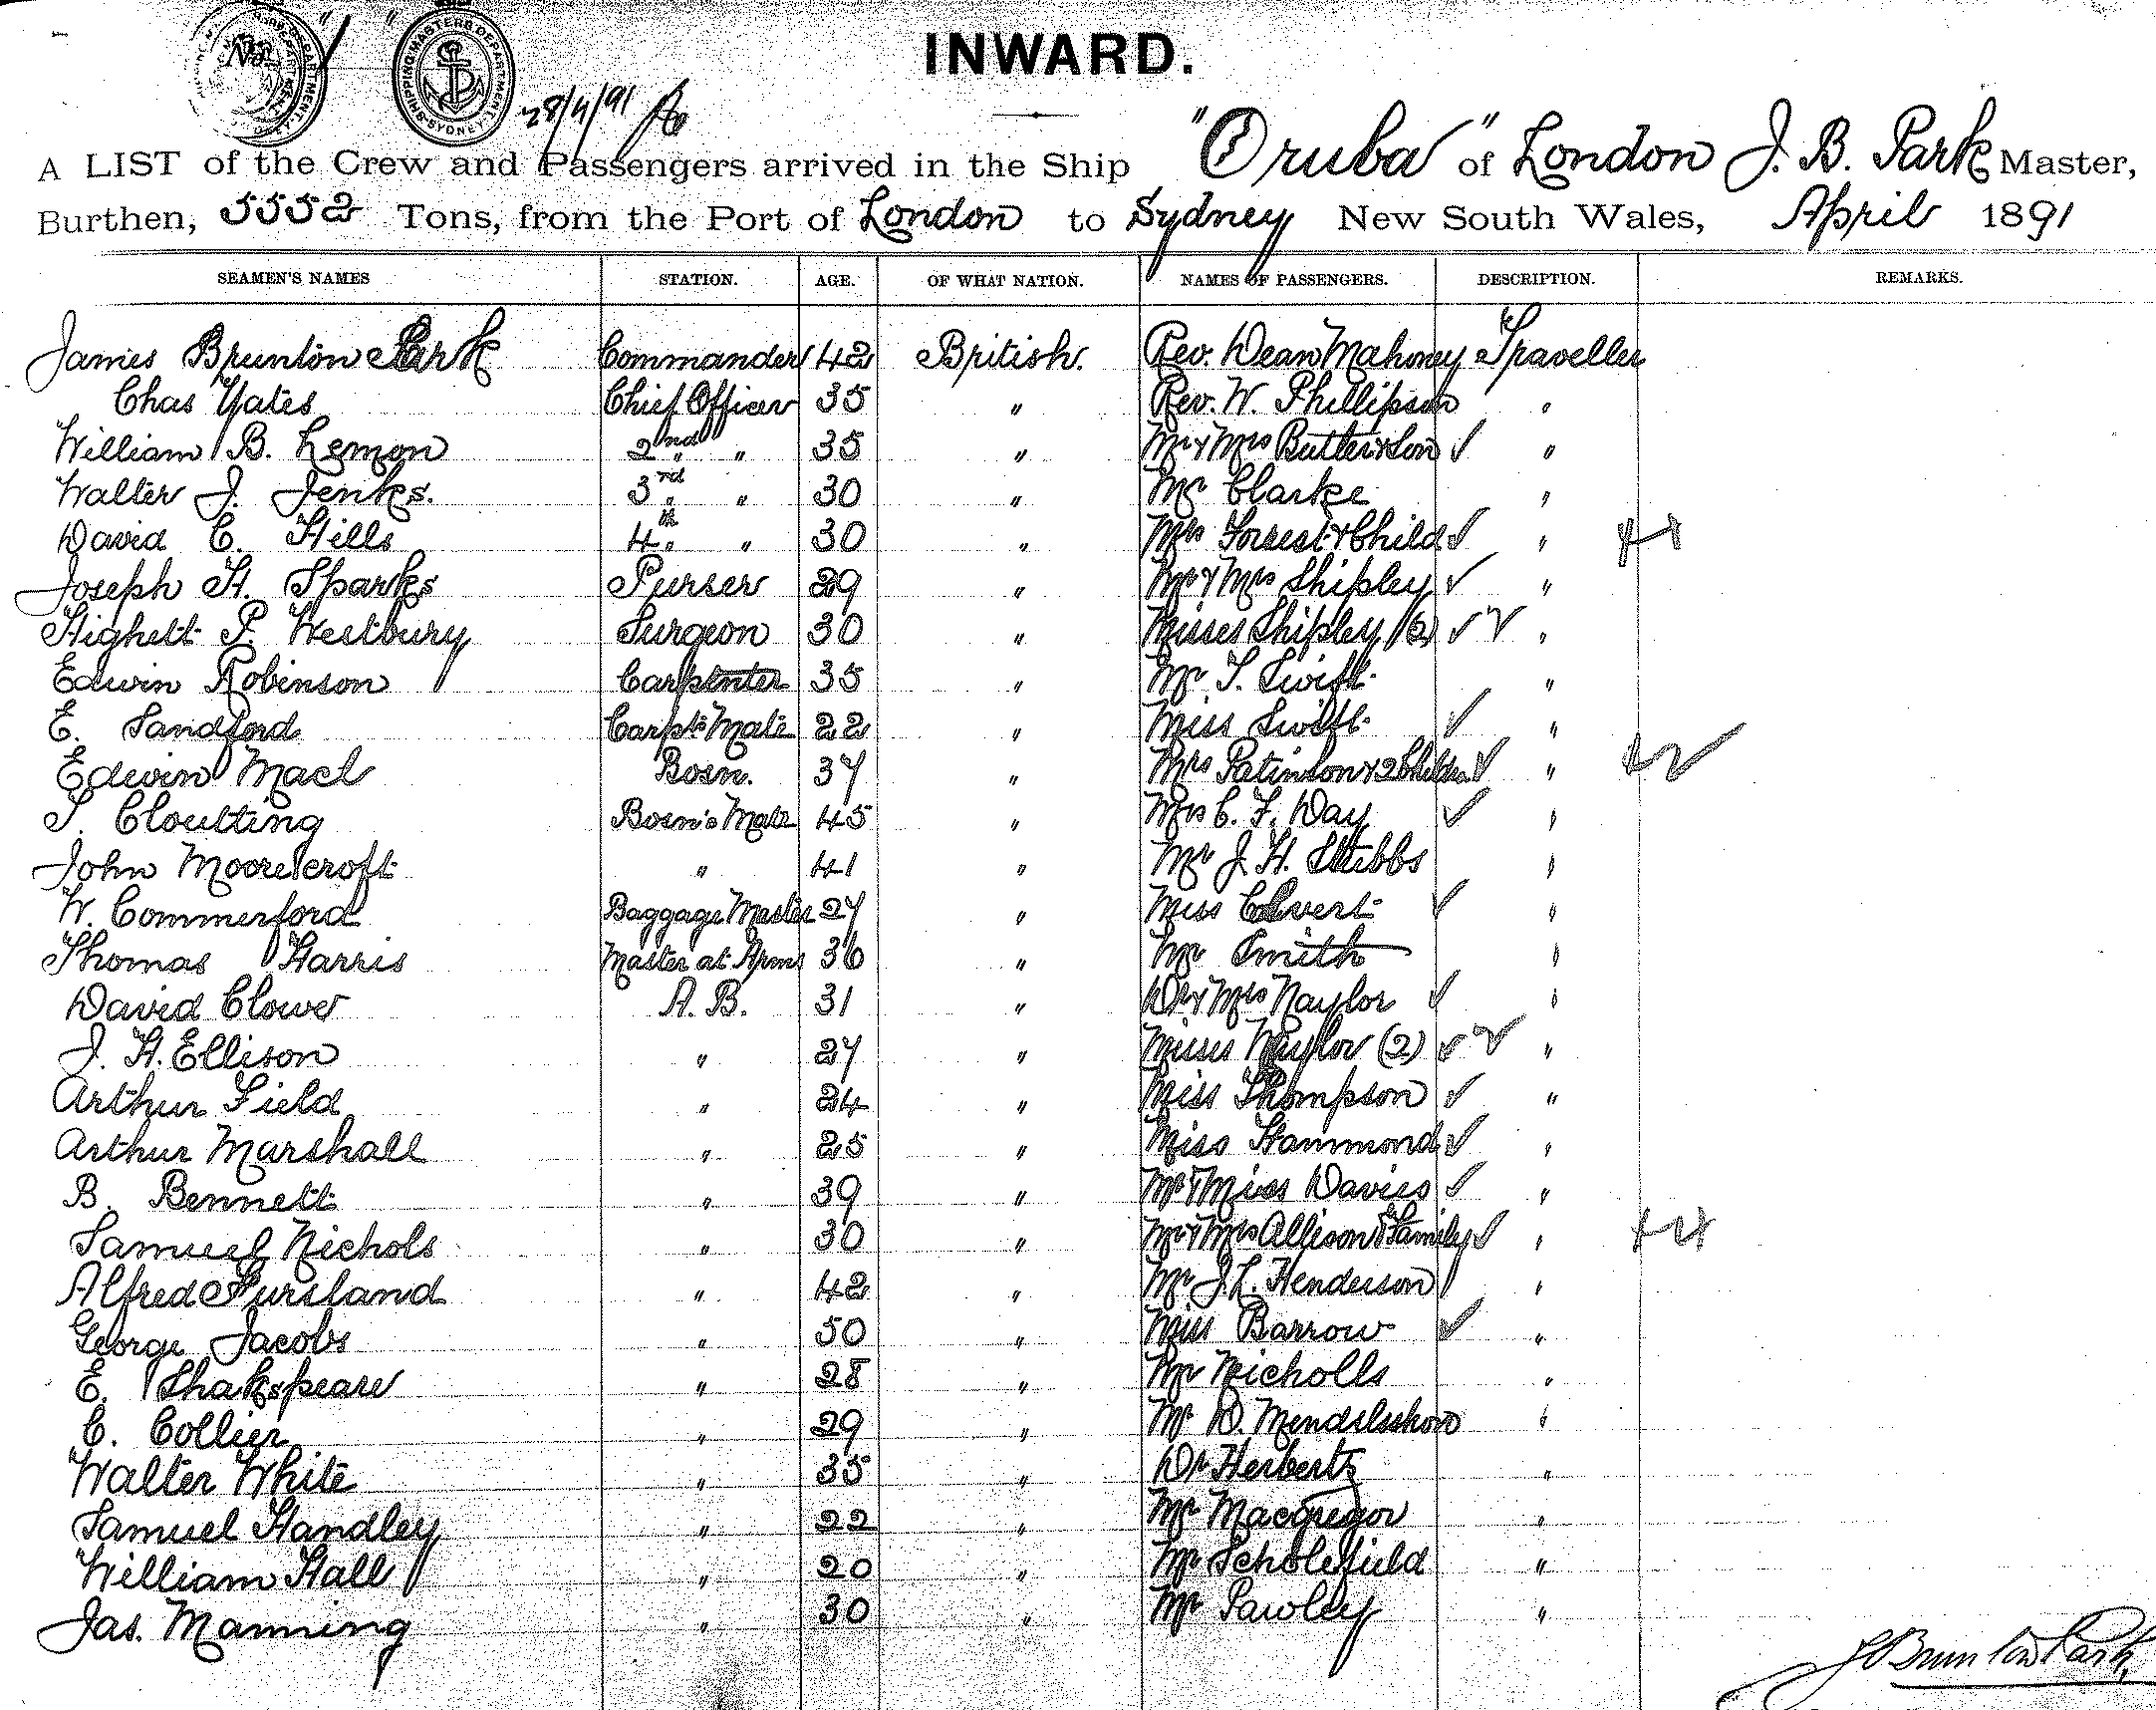 No. 1
SHIPPING MASTERS DEPARTMENT SYDNEY
28/4/91
INWARD.
A LIST of the Crew and Passengers arrived in the Ship "Oruba" of London J. B. Park Master,
Burthen, 5552 Tons, from the Port of London to Sydney New South Wales, April 1891
SEAMEN'S NAMES STATION. AGE. OF WHAT NATION. NAMES OF PASSENGERS. DESCRIPTION. REMARKS.
James Brunton Park Commander 42 British. Rev. Dean Mahoney Traveller
Chas Yates Chief Officer 35 " Rev. W. Phillipson "
William B. Lemon 2nd " 35 " Mr & Mrs Butler & Son "
Walter J. Jenks. 3rd " 30 " Mr Clarke "
David C. Hills 4th " 30 " Mrs Forrest & Child " +1
Joseph H. Sparks Purser 29 " Mr & Mrs Shipley "
Highett P. Westbury Surgeon 30 " Misses Shipley (2) "
Edwin Robinson Carpenter 35 " Mr T. Swift "
E. Sandford Carpts Mate 22 " Miss Swift "
Edwin Mact Bosn. 37 " Mrs Patinson & 2 Childn " +2
S. Cloutting Bosn's Mate 45 " Mrs C. F. Day "
John Moorecroft " 41 " Mr J. H. Stubbs "
W. Commerford Baggage Master 27 " Miss "
Thomas Harris Master at Arms 36 " Mr Smith "
David Clower A. B. 31 " Dr & Mrs Naylor "
J. H. Ellison " 27 " Misses Naylor (2) "
Arthur Field " 24 " Miss Thompson "
Arthur Marshall " 25 " Miss Hammond "
B. Bennett " 39 " Mr & Miss Davies "
Samuel Nichols " 30 " Mr & Mrs Allison & Family " +4
Alfred Pursland " 42 " Mr J. L. Henderson "
George Jacobs " 50 " Miss Barrow "
E. Shakspeare " 28 " Mr Nicholls "
C. Collier " 29 " Mr D. Mendelsshon "
Walter White " 35 " Dr Herbertz "
Samuel Handley " 22 " Mr Macgregor "
William Hall " 20 " Mr Scholefield "
Jas. Manning " 30 " Mr Pawley "
J Brunton Park